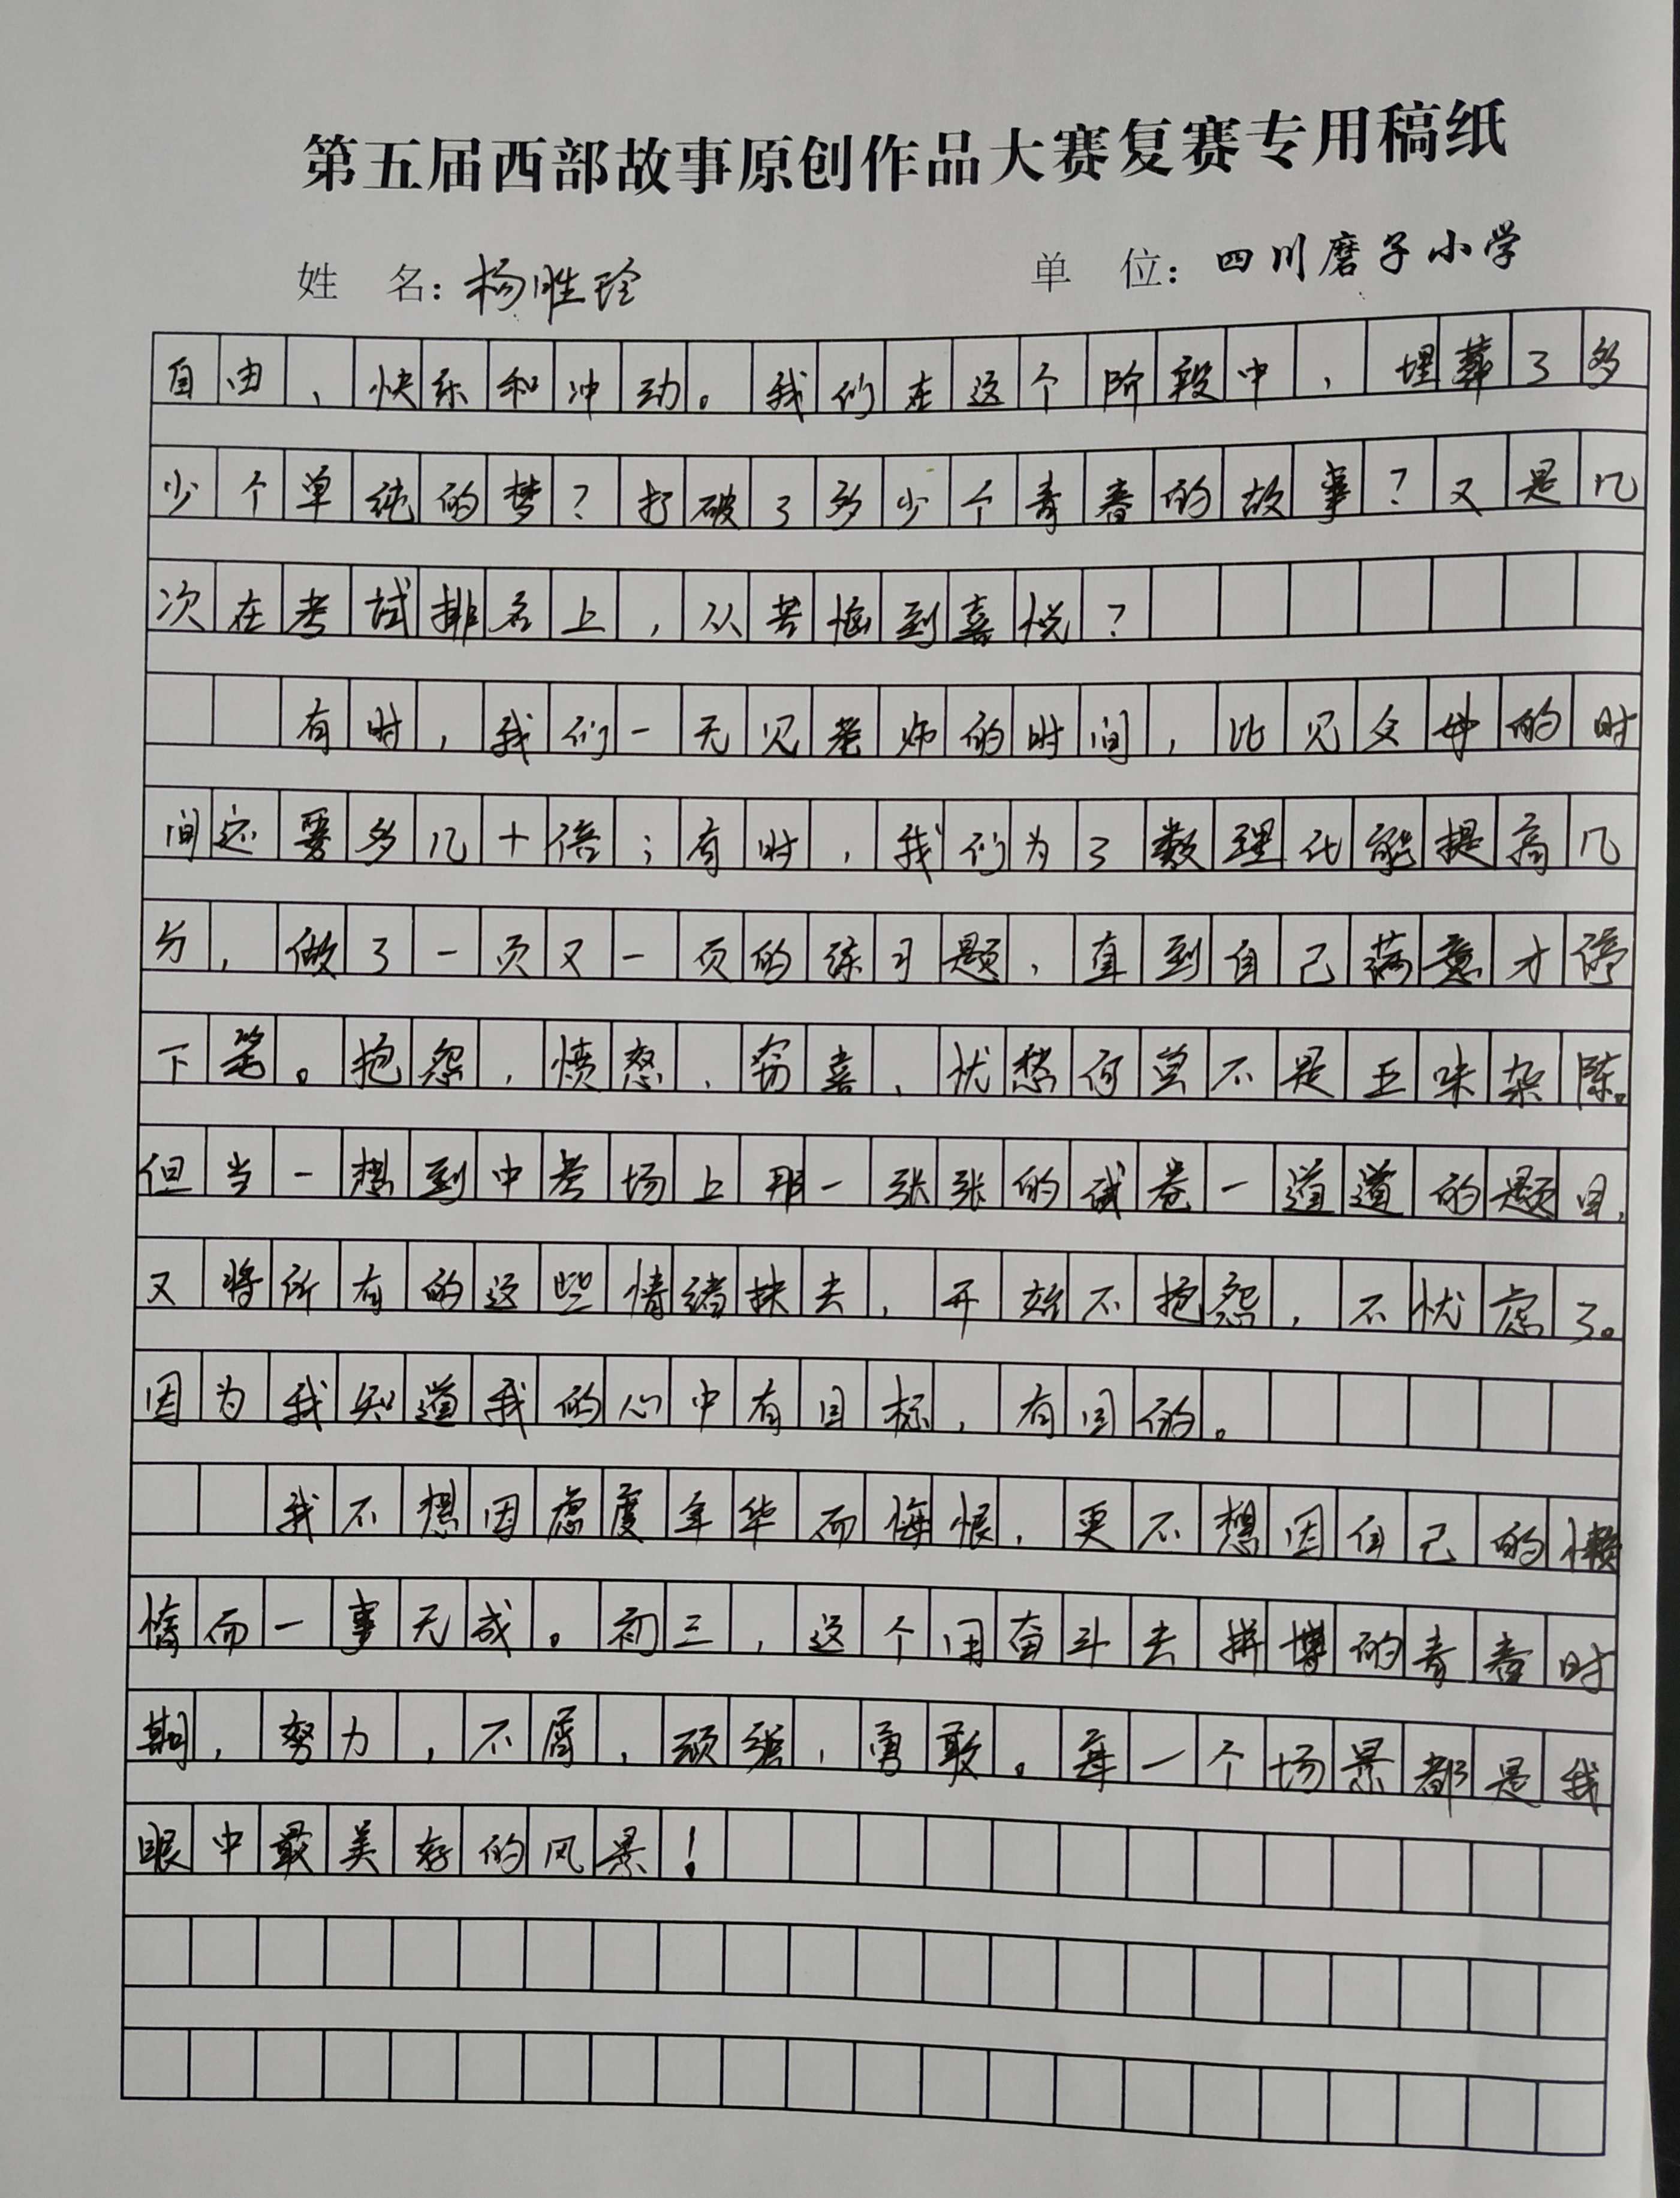 第五届西部故事原创作品大赛复赛专用稿纸
姓 名：杨胜玲 单 位：四川磨子小学
自由，快乐和冲动。我们在这个阶段中，埋葬了多
少个单纯的梦？打破了多少个青春的故事？又是几
次在考试排名上，从苦恼到喜悦？
有时，我们一天见老师的时间，比见父母的时
间还要多几十倍；有时，我们为了数理化能提高几
分，做了一页又一页的练习题，直到自己满意才停
下笔。抱怨，愤怒，窃喜，忧愁何尝不是五味杂陈。
但当一想到中考场上那一张张的试卷一道道的题目，
又将所有的这些情绪抹去，开始不抱怨，不忧虑了。
因为我知道我的心中有目标，有目的。
我不想因虑度年华而悔恨，更不想因自己的懒
惰而一事无成。初三，这个用奋斗去拼搏的青春时
期，努力，不屑，顽强，勇敢。每一个场景都是我
眼中最美好的风景！